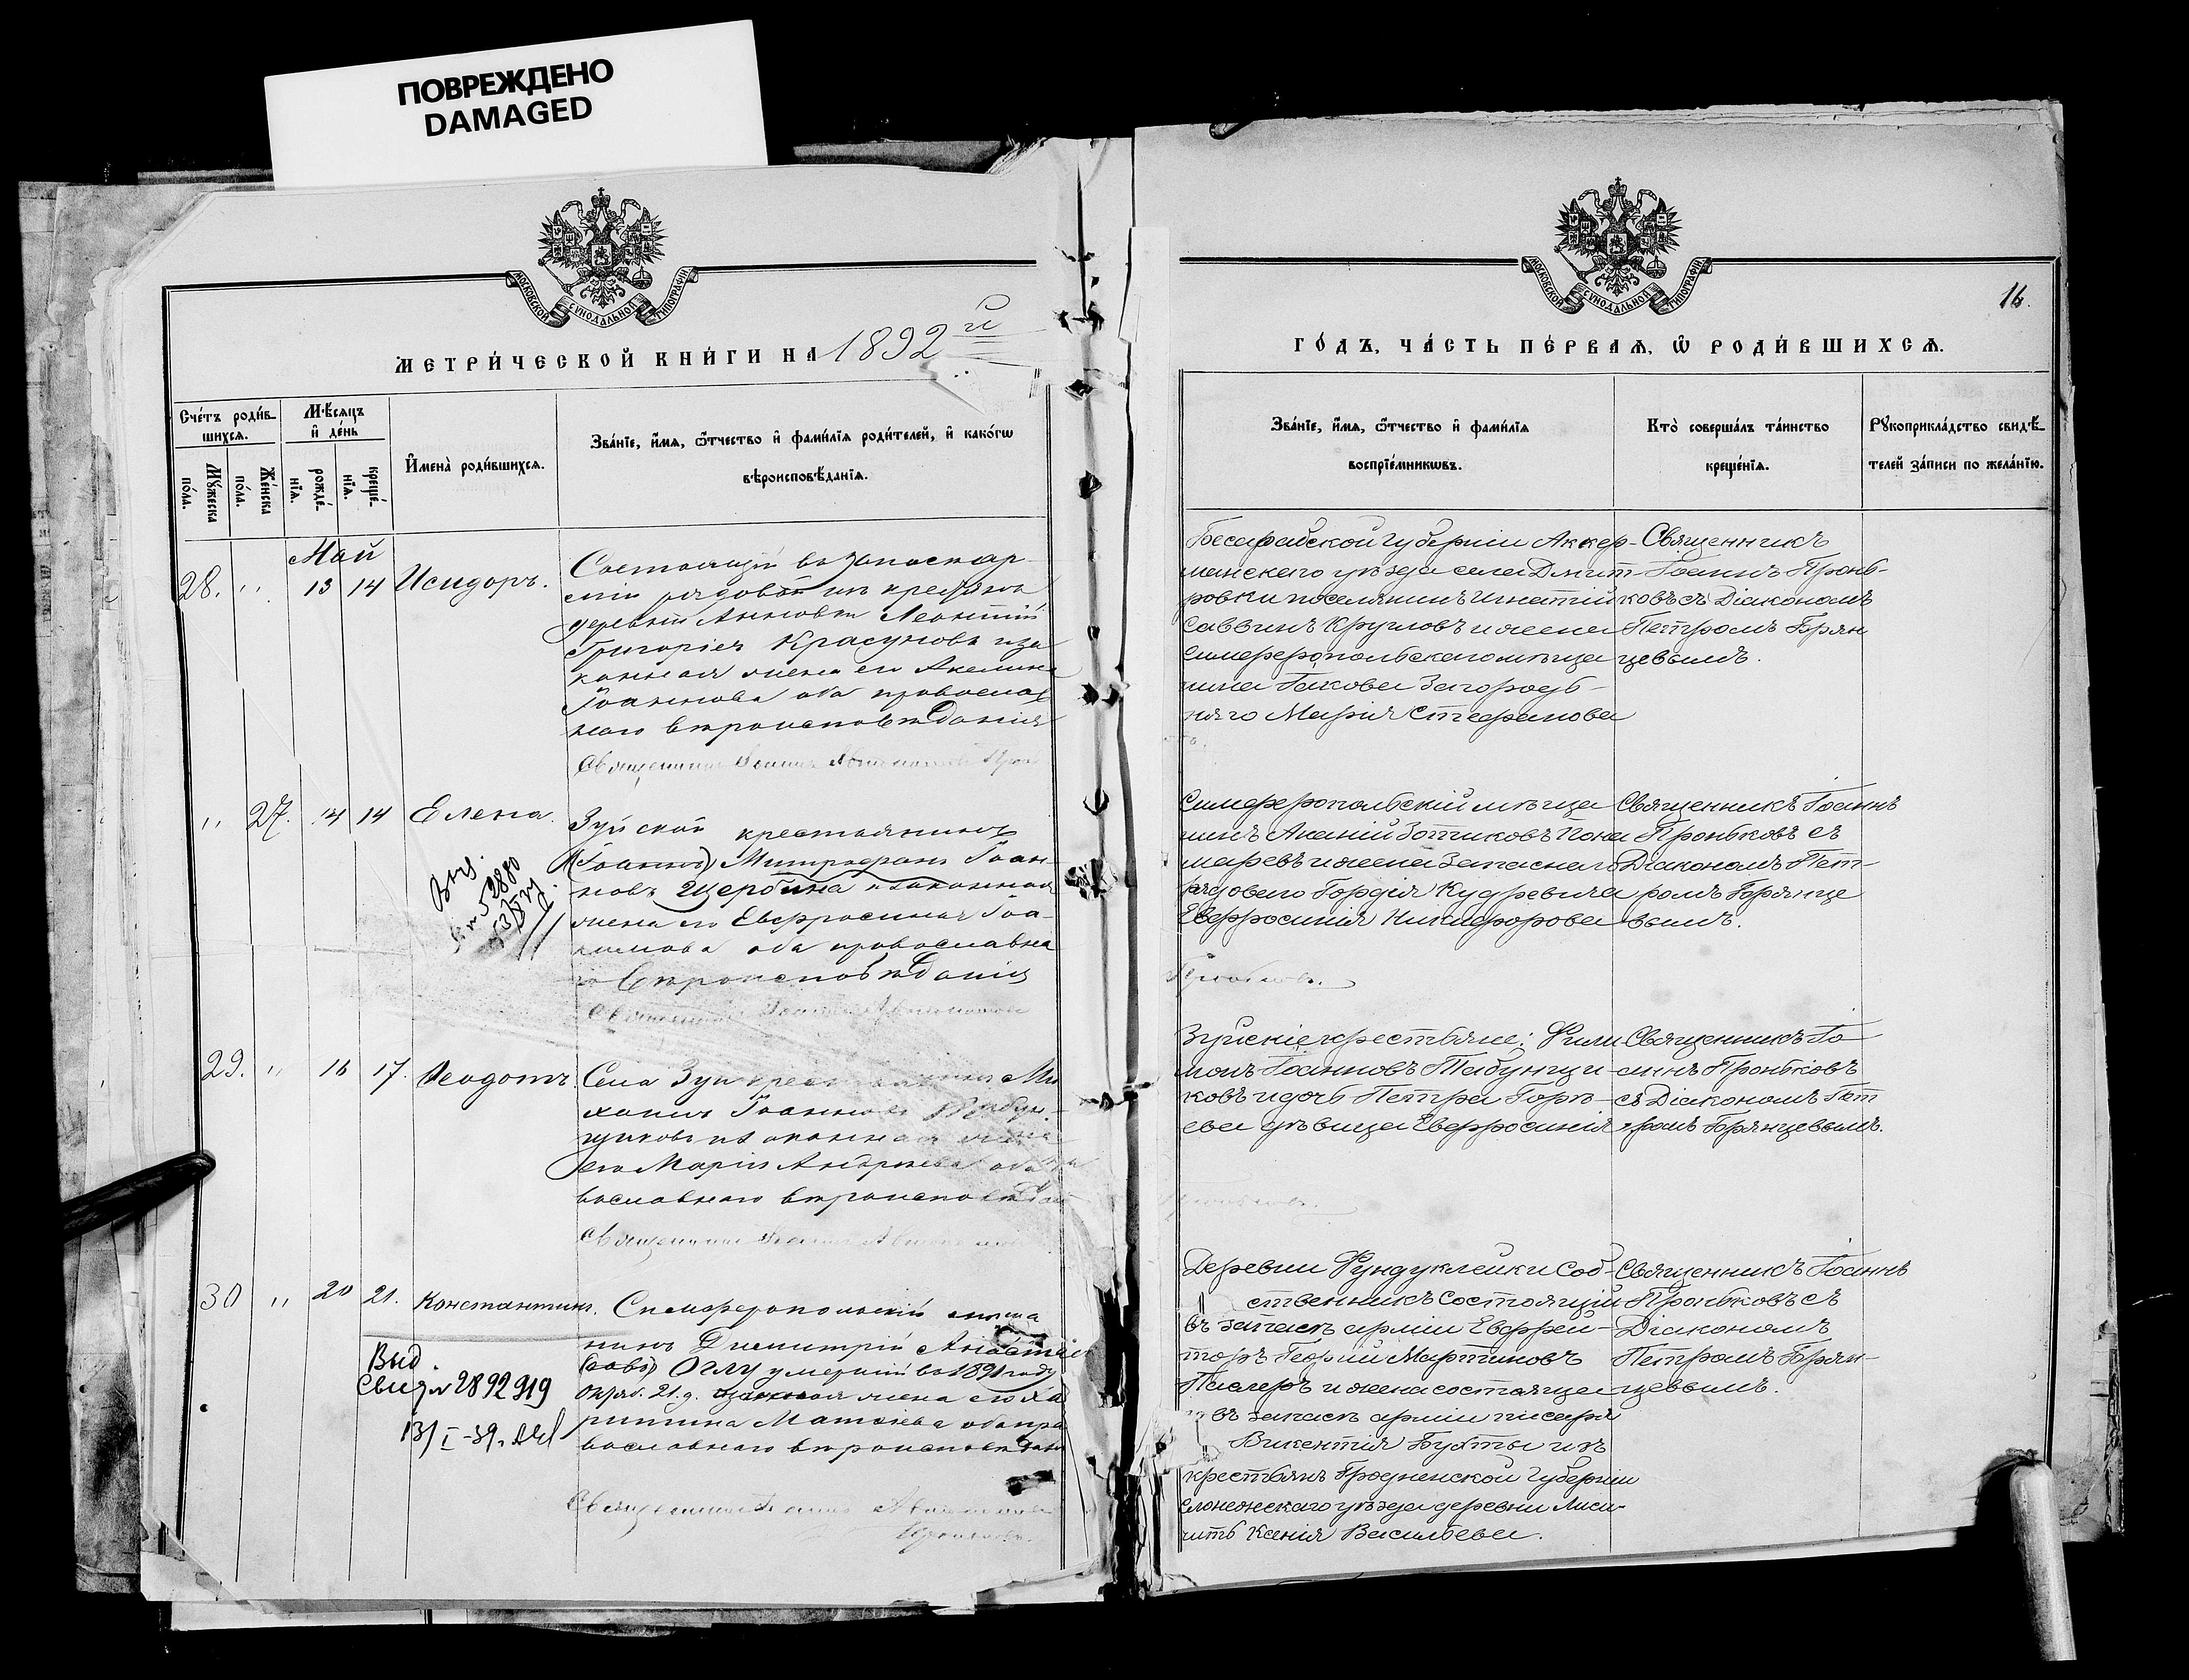 ПОВРЕЖДЕНО
DAMAGED
МОСКОВСКОЙ СУНОДАЛЬНОЙ ТИПОГРАФІИ
МЕТРИ́ЧЕСКОЙ КНИ́ГИ НА 1892й
Сче́тъ роди́в-
шихсѧ.
Мꙋ́жеска
по́ла.
Же́нска
по́ла.
Мѣ́сѧцъ
и҆ де́нь
рожде́-
нїѧ.
креще́-
нїѧ.
И҆мена̀ роди́вшихсѧ.
Зва́нїе, и҆́мѧ, ѻ҆́тчество и҆ фами́лїѧ роди́телей, и҆ како́гѡ
вѣроисповѣ́данїѧ.
Май
28. " 13 14 Исидоръ.
Состоящій въ запасѣ ар-
міи рядовой изъ крестьянъ
деревни Анновки Леонтій
Григоріевъ Красуновъ и за
конная жена его Акелина
Іоаннова оба православ
наго вѣроисповѣданія
Священникъ Іоаннъ
" 27. 14 14 Елена.
Зуйской крестьянинъ
(Іоаннъ) Митрофанъ Іоан-
новъ Щербина и законная
жена его Евфросинія Іоа-
кимова оба православна
го вѣроисповѣданія
Священникъ Іоаннъ
29. " 16 17. Ѳеодотъ.
Села Зуи крестьянинъ Ми
хаилъ Іоанновъ Табун-
щиковъ и законная жена
его Марія Андреева оба
вославнаго вѣроисповѣдан
Священникъ Іоаннъ
30 " 20 21. Константинъ.
Симферопольскій мѣща
нинъ Димитрій Анастас
(совъ) Оглу умершій въ 1891 году
Окряб. 21. д. законная жена его Ха
ритина Матѳіева оба пра
вославнаго вѣроисповѣдан
Священникъ Іоаннъ
Выд.
Свид № 2892919
13/I-39.
МОСКОВСКОЙ СУНОДАЛЬНОЙ ТИПОГРАФІИ
16.
ГО́ДЪ, ЧА́СТЬ ПЕ́РВАѦ, Ѡ РОДИ́ВШИХСѦ.
Зва́нїе, и҆́мѧ, ѻ҆́тчество и҆ фами́лїѧ
воспрїе́мникѡвъ.
Кто̀ соверша́лъ та́инство
креще́нїѧ.
Рꙋкоприкла́дство свидѣ́-
телей за́писи по жела́нїю.
Бесарабской губерніи Аккер-
манскаго уѣзда села Дмит-
ровки поселянинъ Игнатій
Саввинъ Кругловъ и жена
симферопольскаго мѣща
нина Іакова Загородь-
няго Марія Стефанова
Священникъ
Іоаннъ Проньб-
ковъ съ Діакономъ
Петромъ Брян
цевымъ.
Симферопольскій мѣща
нинъ Ананій Зотиковъ Поно
маревъ и жена Запаснаго
рядоваго Гордія Кудревича
Евфросинія Никифорова
Священникъ Іоаннъ
Проньковъ съ
Діакономъ Пет-
ромъ Брянце
вымъ.
Зуйскіе крестьяне: Фили
монъ Іоанновъ Табунщи-
ковъ и дочь Петра Горѣ-
ева дѣвица Евфросинія
Священникъ Іо
аннъ Проньковъ
съ Діакономъ Пет
ромъ Брянцевымъ.
Деревни Фундуклейки Соб-
ственникъ Состоящій
въ запасѣ арміи Ефрей-
торъ Георгій Мартиновъ
Пислеръ и жена состояща
въ запасѣ арміи писаря
Викентія Бухты изъ
крестьянъ Гродненской губерніи
Слонемскаго уѣзда деревни Лиси-
чить Ксенія Васильева.
Священникъ Іоаннъ
Проньковъ съ
Діакономъ
Петромъ Брян-
цевымъ.